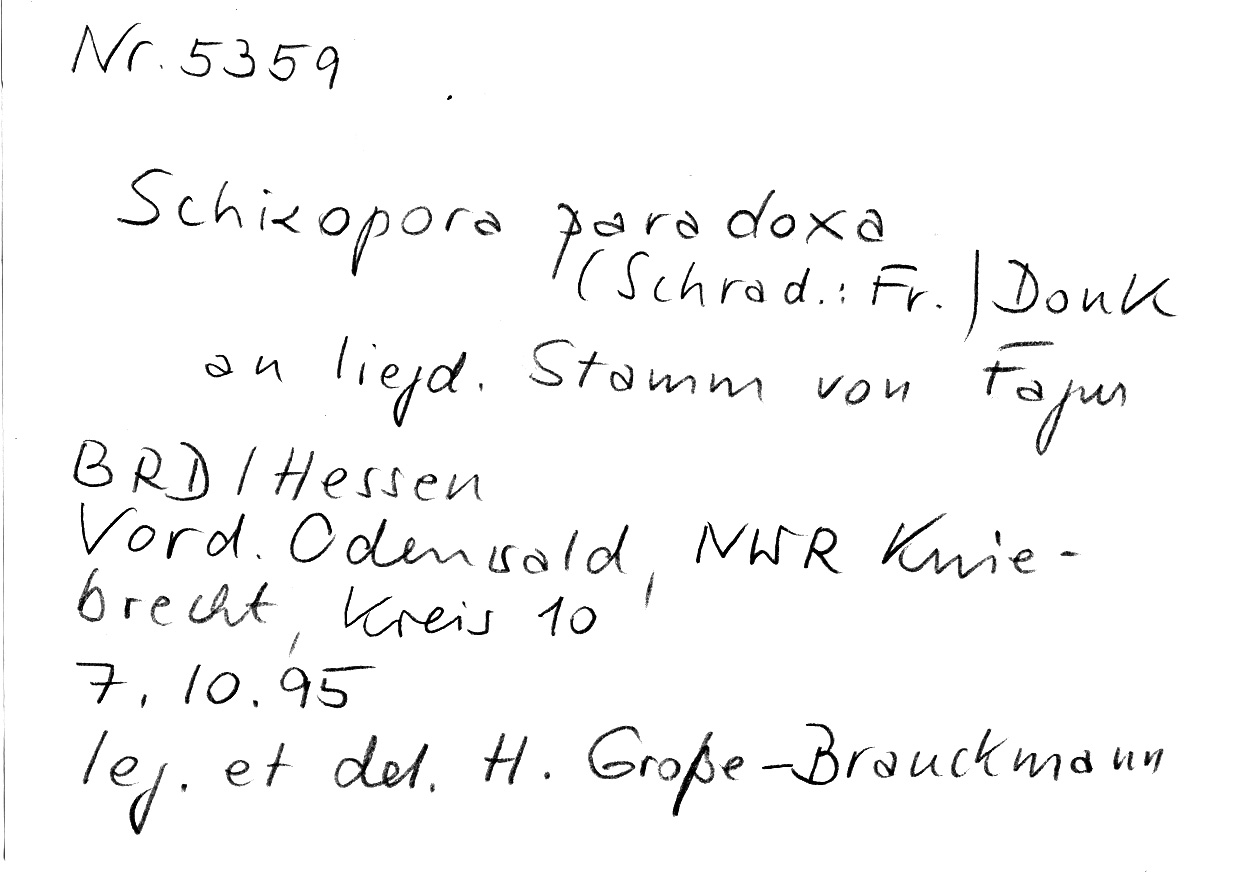 Nr. 5359
Schizopora paradoxa
(Schrad.: Fr.) Donk
an liegd. Stamm von Fagus
BRD / Hessen
Vord. Odenwald, NWR Knie-
brecht, Kreis 10
7.10.95
leg. et det. H. Große-Brauckmann